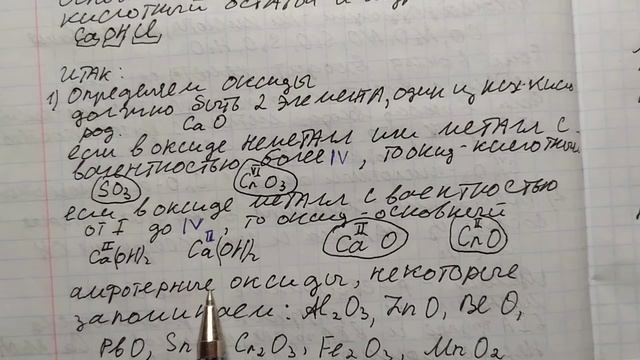 кислотный остаток и
CaOHCl
ИТАК:
1) Определяем оксиды
должно быть 2 элемента, один из них-кисло
род. CaO
если в оксиде неметалл или металл с
валентностью более IV, то оксид-кислотный
SO3 CrO3 VI
если в оксиде металл с валентностью
от I до IV, то оксид-основный
Ca(OH)2 II Ca(OH)2 II CaO II CrO II
амфотерные оксиды, некоторые
запоминаем: Al2O3, ZnO, BeO,
PbO, Sn Cr2O3, Fe2O3, MnO2